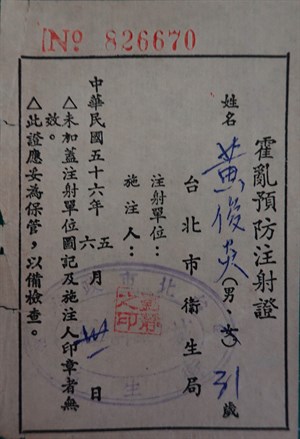 № 826670
霍亂預防注射證
姓名 黃俊 (男、女) 31 歲
台北市衛生局
注射單位:
施注人:
中華民國五十六年 五 六 月 日
△未加蓋注射單位圖記及施注人印章者無
效。
△此證應妥為保管,以備檢查。